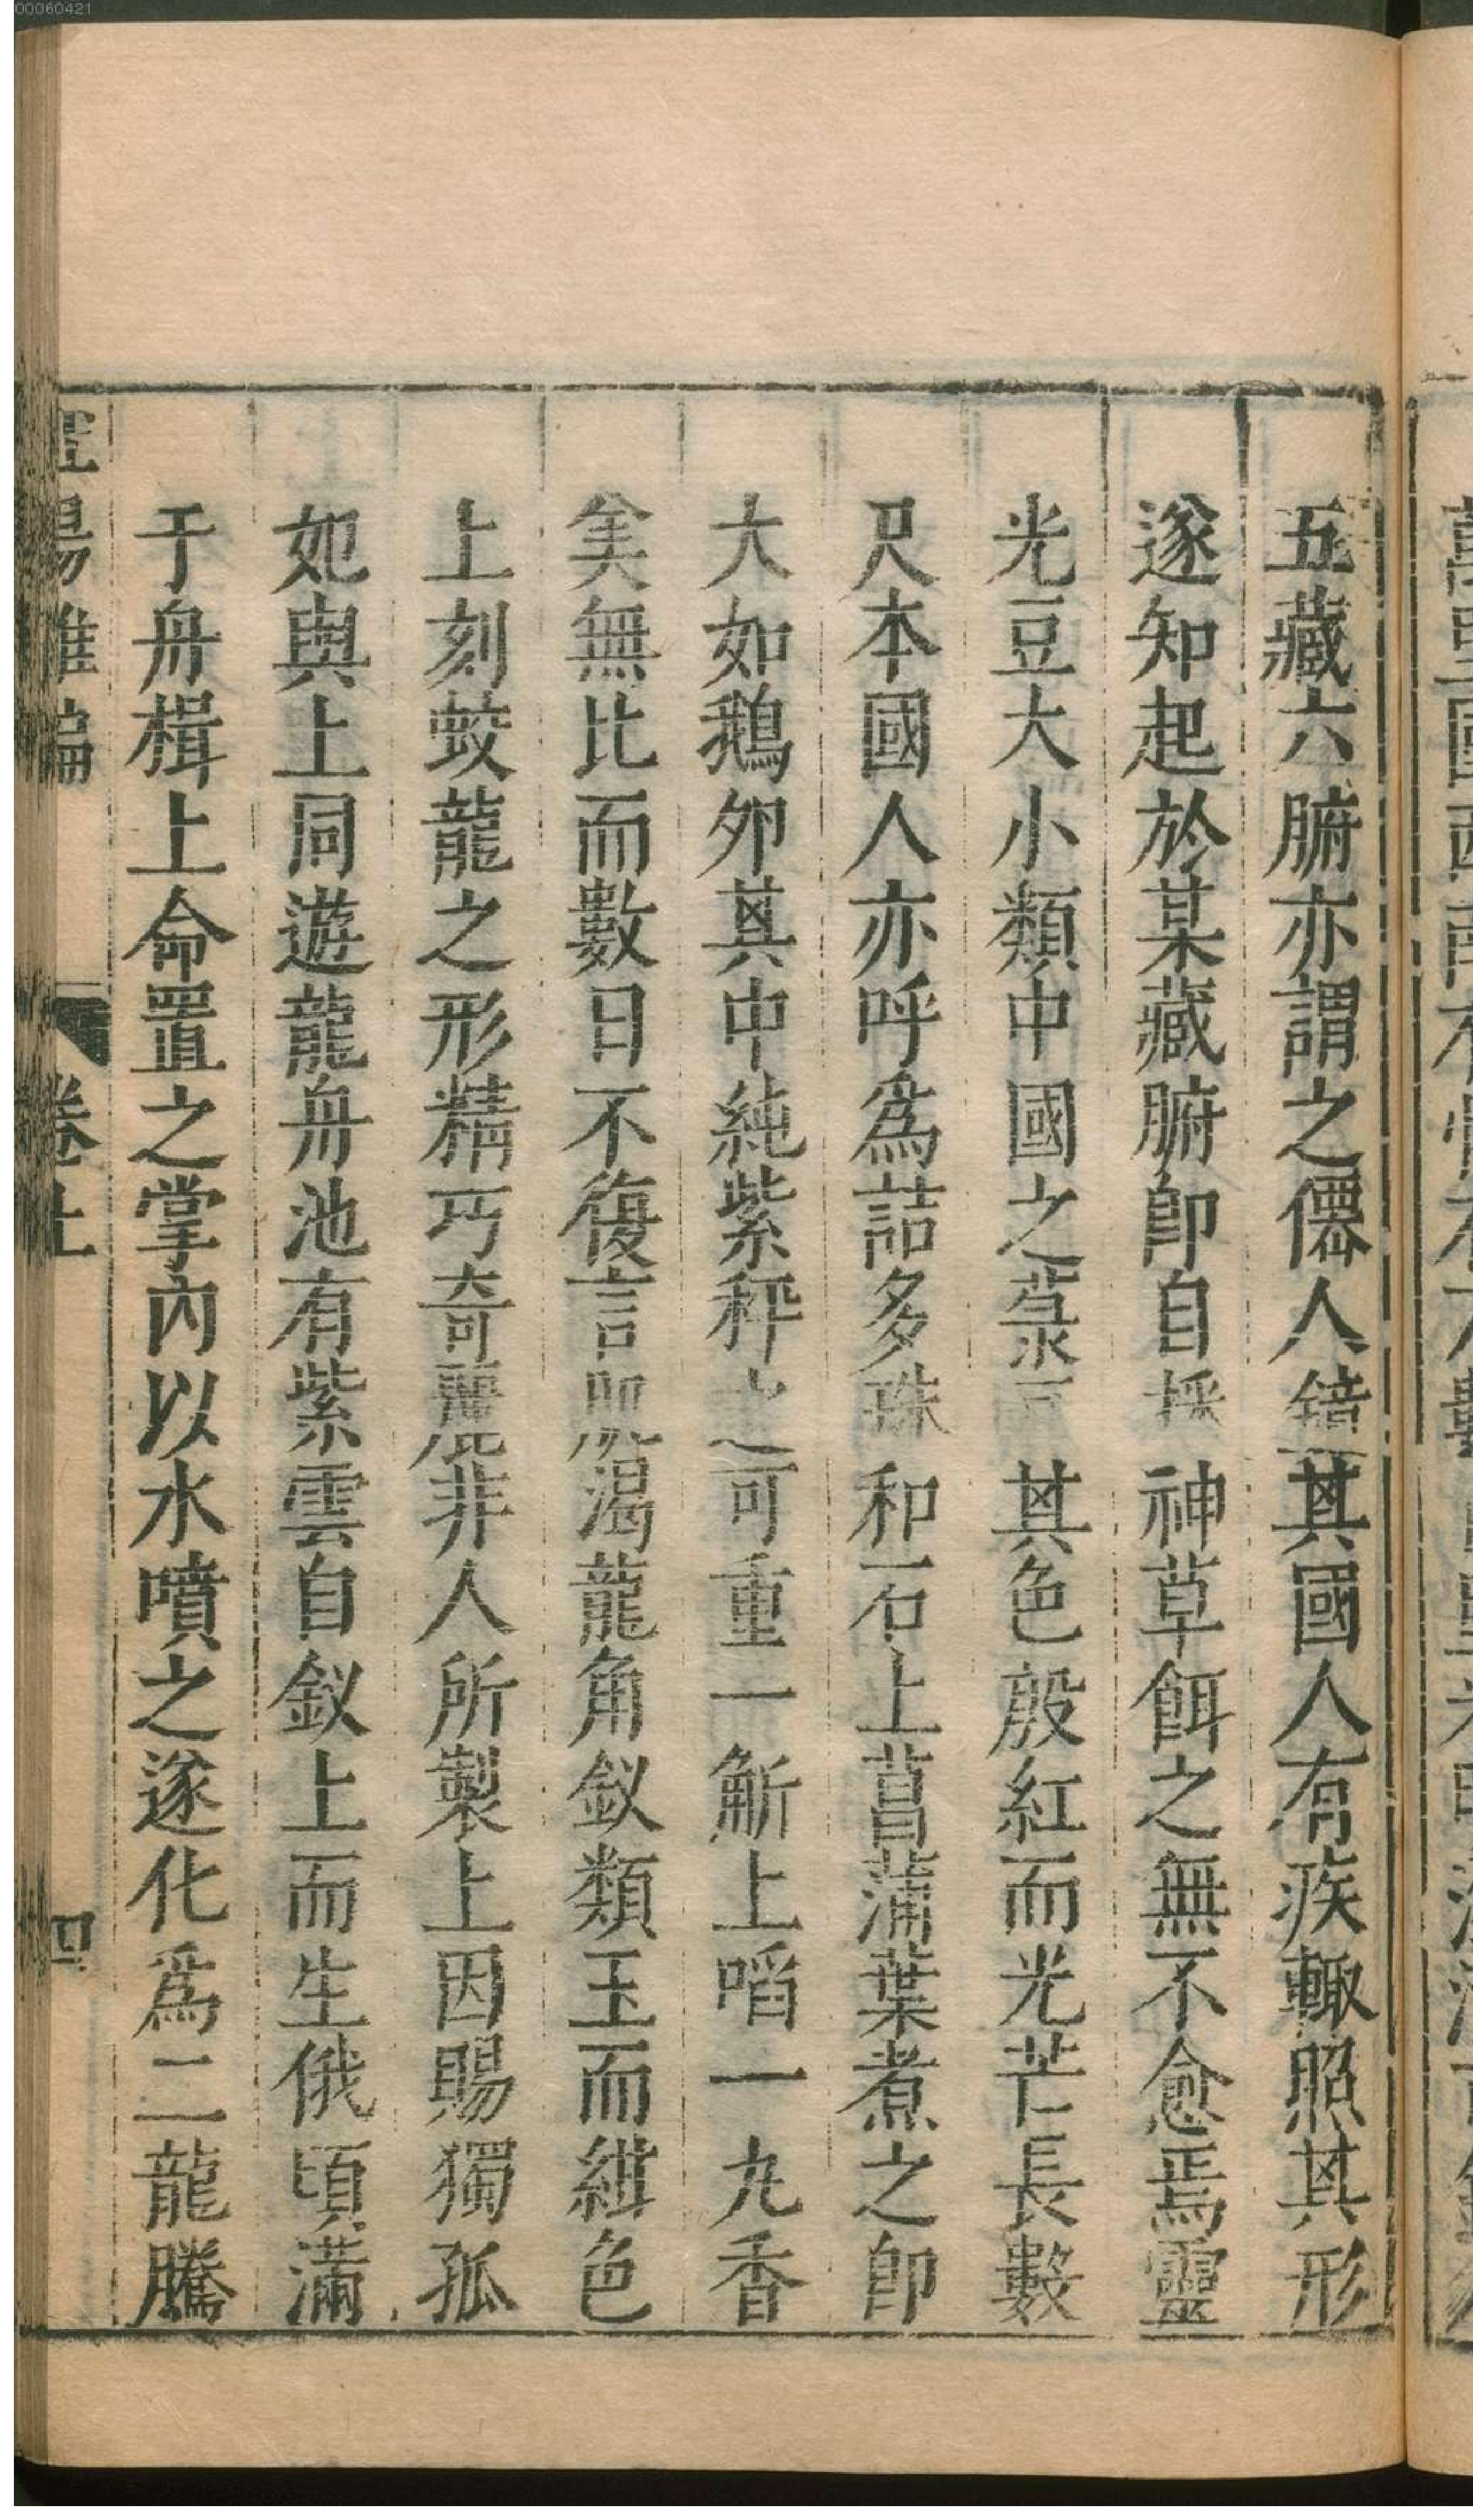 00060421
五藏六腑亦謂之僊人鏡其國人有疾輙照其形
遂知起於某藏腑即自採神草餌之無不愈焉靈
光豆大小類中國之菉豆其色殷紅而光芒長數
尺本國人亦呼爲詰多珠和石上菖蒲葉煮之即
大如鵝夘其中純紫秤之可重一觔上啗一丸香
美無比而數日不復言飢渴龍角釵類玉而紺色
上刻蛟龍之形精巧奇麗非人所製上因賜獨孤
妃與上同遊龍舟池有紫雲自釵上而生俄頃滿
于舟楫上命置之掌內以水噴之遂化爲二龍騰
陽雜編
卷上
四